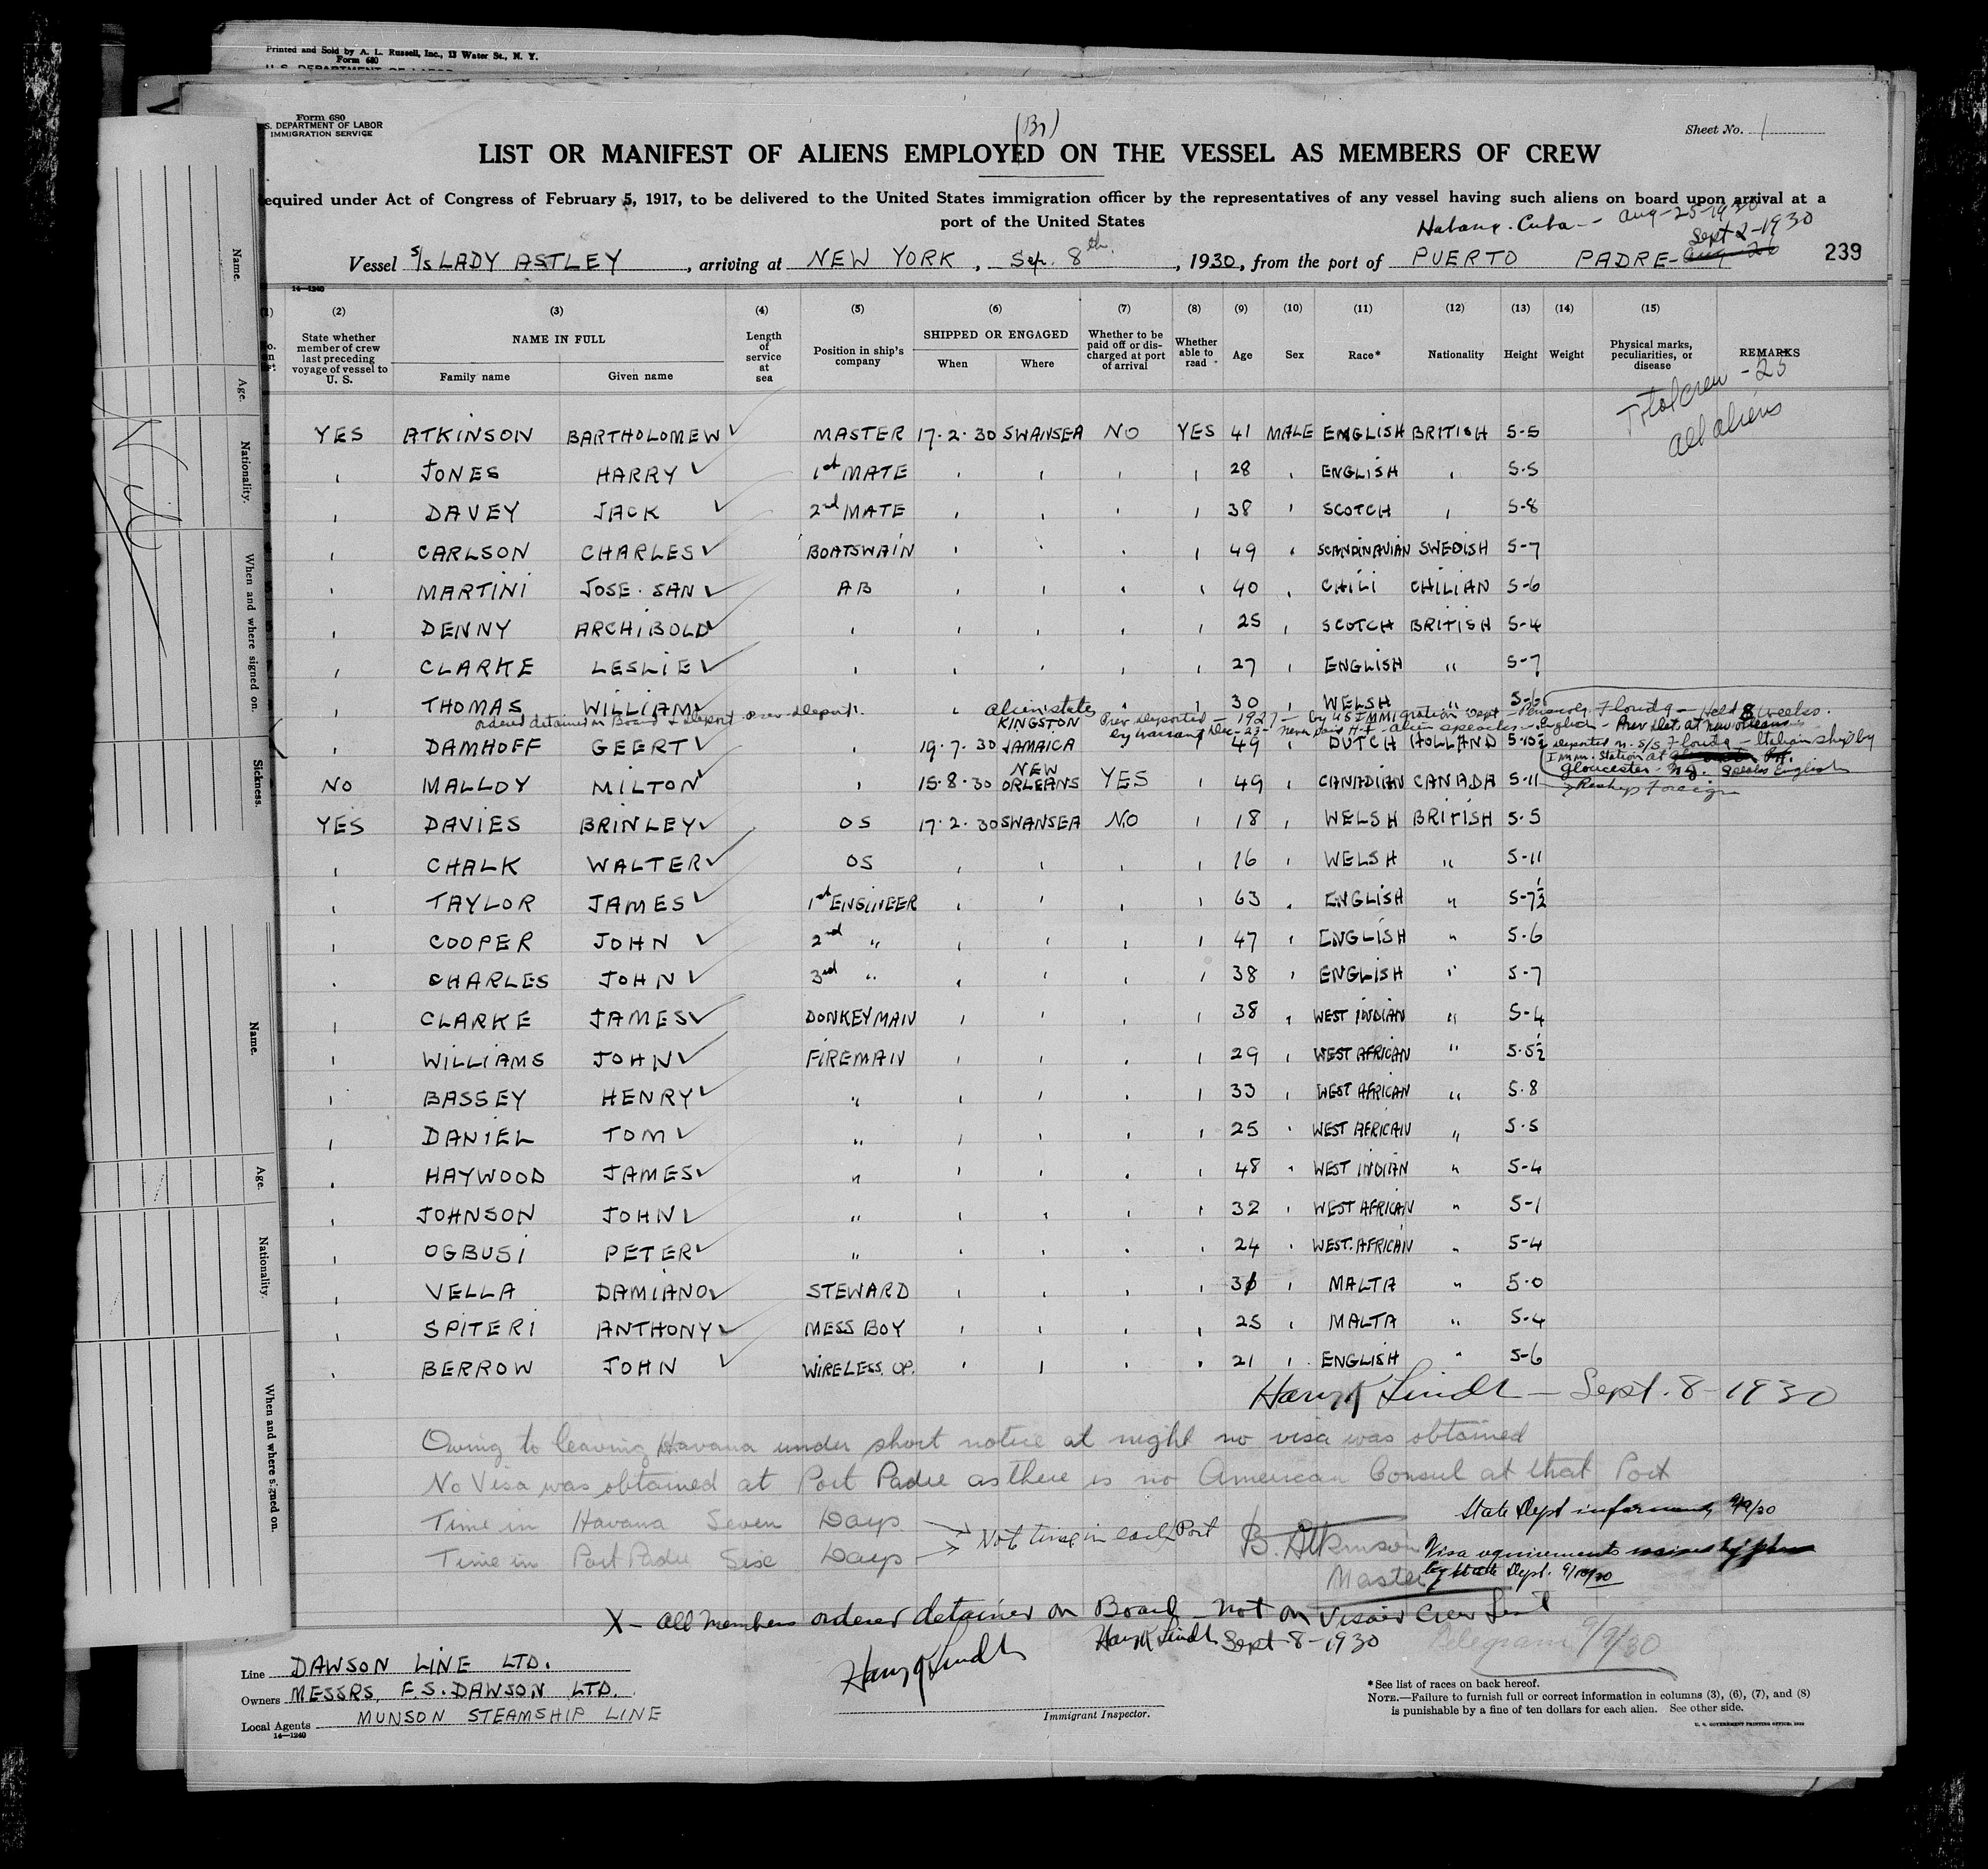 Printed and Sold by A. L. Russell, Inc., 13 Water St., N. Y.
Form 680
U. S. DEPARTMENT OF LABOR
Form 680
S. DEPARTMENT OF LABOR
IMMIGRATION SERVICE
(Br)
Sheet No. 1
LIST OR MANIFEST OF ALIENS EMPLOYED ON THE VESSEL AS MEMBERS OF CREW
equired under Act of Congress of February 5, 1917, to be delivered to the United States immigration officer by the representatives of any vessel having such aliens on board upon arrival at a
port of the United States
Habana-Cuba- Aug-25-1930
Sept 2-1930
Vessel S/S LADY ASTLEY, arriving at NEW YORK, Sep. 8th, 1930, from the port of PUERTO PADRE- Aug 26 239
14—1240
(2) (3) (4) (5) (6) (7) (8) (9) (10) (11) (12) (13) (14) (15)
State whether member of crew last preceding voyage of vessel to U. S.
NAME IN FULL
Family name Given name
Length of service at sea
Position in ship's company
SHIPPED OR ENGAGED
When Where
Whether to be paid off or discharged at port of arrival
Whether able to read
Age Sex Race* Nationality Height Weight
Physical marks, peculiarities, or disease
REMARKS
Total crew - 25
all aliens
YES ATKINSON BARTHOLOMEW MASTER 17·2·30 SWANSEA NO YES 41 MALE ENGLISH BRITISH 5-5
" JONES HARRY 1st MATE " " " " 28 " ENGLISH " 5.5
" DAVEY JACK 2nd MATE " " " " 38 " SCOTCH " 5-8
" CARLSON CHARLES BOATSWAIN " " " " 49 " SCANDINAVIAN SWEDISH 5-7
" MARTINI JOSE. SAN AB " " " " 40 " CHILI CHILIAN 5-6
" DENNY ARCHIBOLD " " " " " 25 " SCOTCH BRITISH 5-4
" CLARKE LESLIE " " " " " 27 " ENGLISH " 5-7
" THOMAS WILLIAM " " " " 30 " WELSH " 5-6
ordered detained on Board & Deport Prev Deport.
alien states
Prev. deported - 1927 - by US Immigration Dept - Pensacola, Florida - Held 8 weeks.
by warrant Dec-23- never paid H.T. - alien speaks English - Prev det. at New Orleans
" DAMHOFF GEERT " 19.7.30 KINGSTON JAMAICA " " 49 " DUTCH HOLLAND 5-10½
deported on S/S Florida - Italian ship by
Imm. Station at
Gloucester - N.J. Speaks English
NO MALLOY MILTON " 15·8·30 NEW ORLEANS YES " 49 " CANADIAN CANADA 5-11
Reship Foreign
YES DAVIES BRINLEY OS 17·2·30 SWANSEA NO " 18 " WELSH BRITISH 5.5
" CHALK WALTER OS " " " " 16 " WELSH " 5-11
" TAYLOR JAMES 1st ENGINEER " " " " 63 " ENGLISH " 5-7½
" COOPER JOHN 2nd " " " " " 47 " ENGLISH " 5.6
" CHARLES JOHN 3rd " " " " " 38 " ENGLISH " 5-7
" CLARKE JAMES DONKEYMAN " " " " 38 " WEST INDIAN " 5-4
" WILLIAMS JOHN FIREMAN " " " " 29 " WEST AFRICAN " 5.5½
" BASSEY HENRY " " " " " 33 " WEST AFRICAN " 5.8
" DANIEL TOM " " " " " 25 " WEST AFRICAN " 5.5
" HAYWOOD JAMES " " " " " 48 " WEST INDIAN " 5-4
" JOHNSON JOHN " " " " " 32 " WEST AFRICAN " 5-1
" OGBUSI PETER " " " " " 24 " WEST. AFRICAN " 5-4
" VELLA DAMIANO STEWARD " " " " 31 " MALTA " 5.0
" SPITERI ANTHONY MESS BOY " " " " 25 " MALTA " 5-4
" BERROW JOHN WIRELESS. OP. " " " " 21 " ENGLISH " 5-6
Harry Lindt - Sept. 8-1930
Owing to leaving Havana under short notice at night no visa was obtained
No Visa was obtained at Port Padre as there is no American Consul at that Port
Time in Havana Seven Days
Time in Port Padre Six Days
Not time in each Port
B. Atkinson
Master
State Dept informed 9/9/30
Visa requirements
by State Dept. 9/10/30
X- all members ordered detained on Board - not on Visaed Crew List
Harry Lindt Sept-8-1930
Telegram 9/9/30
Harry Lindt
Immigrant Inspector.
Line DAWSON LINE LTD.
Owners MESSRS. F.S. DAWSON LTD.
Local Agents MUNSON STEAMSHIP LINE
14—1240
*See list of races on back hereof.
NOTE.—Failure to furnish full or correct information in columns (3), (6), (7), and (8)
is punishable by a fine of ten dollars for each alien. See other side.
Name.
Age.
Nationality.
When and where signed on.
Sickness.
Name.
Age.
Nationality.
When and where signed on.